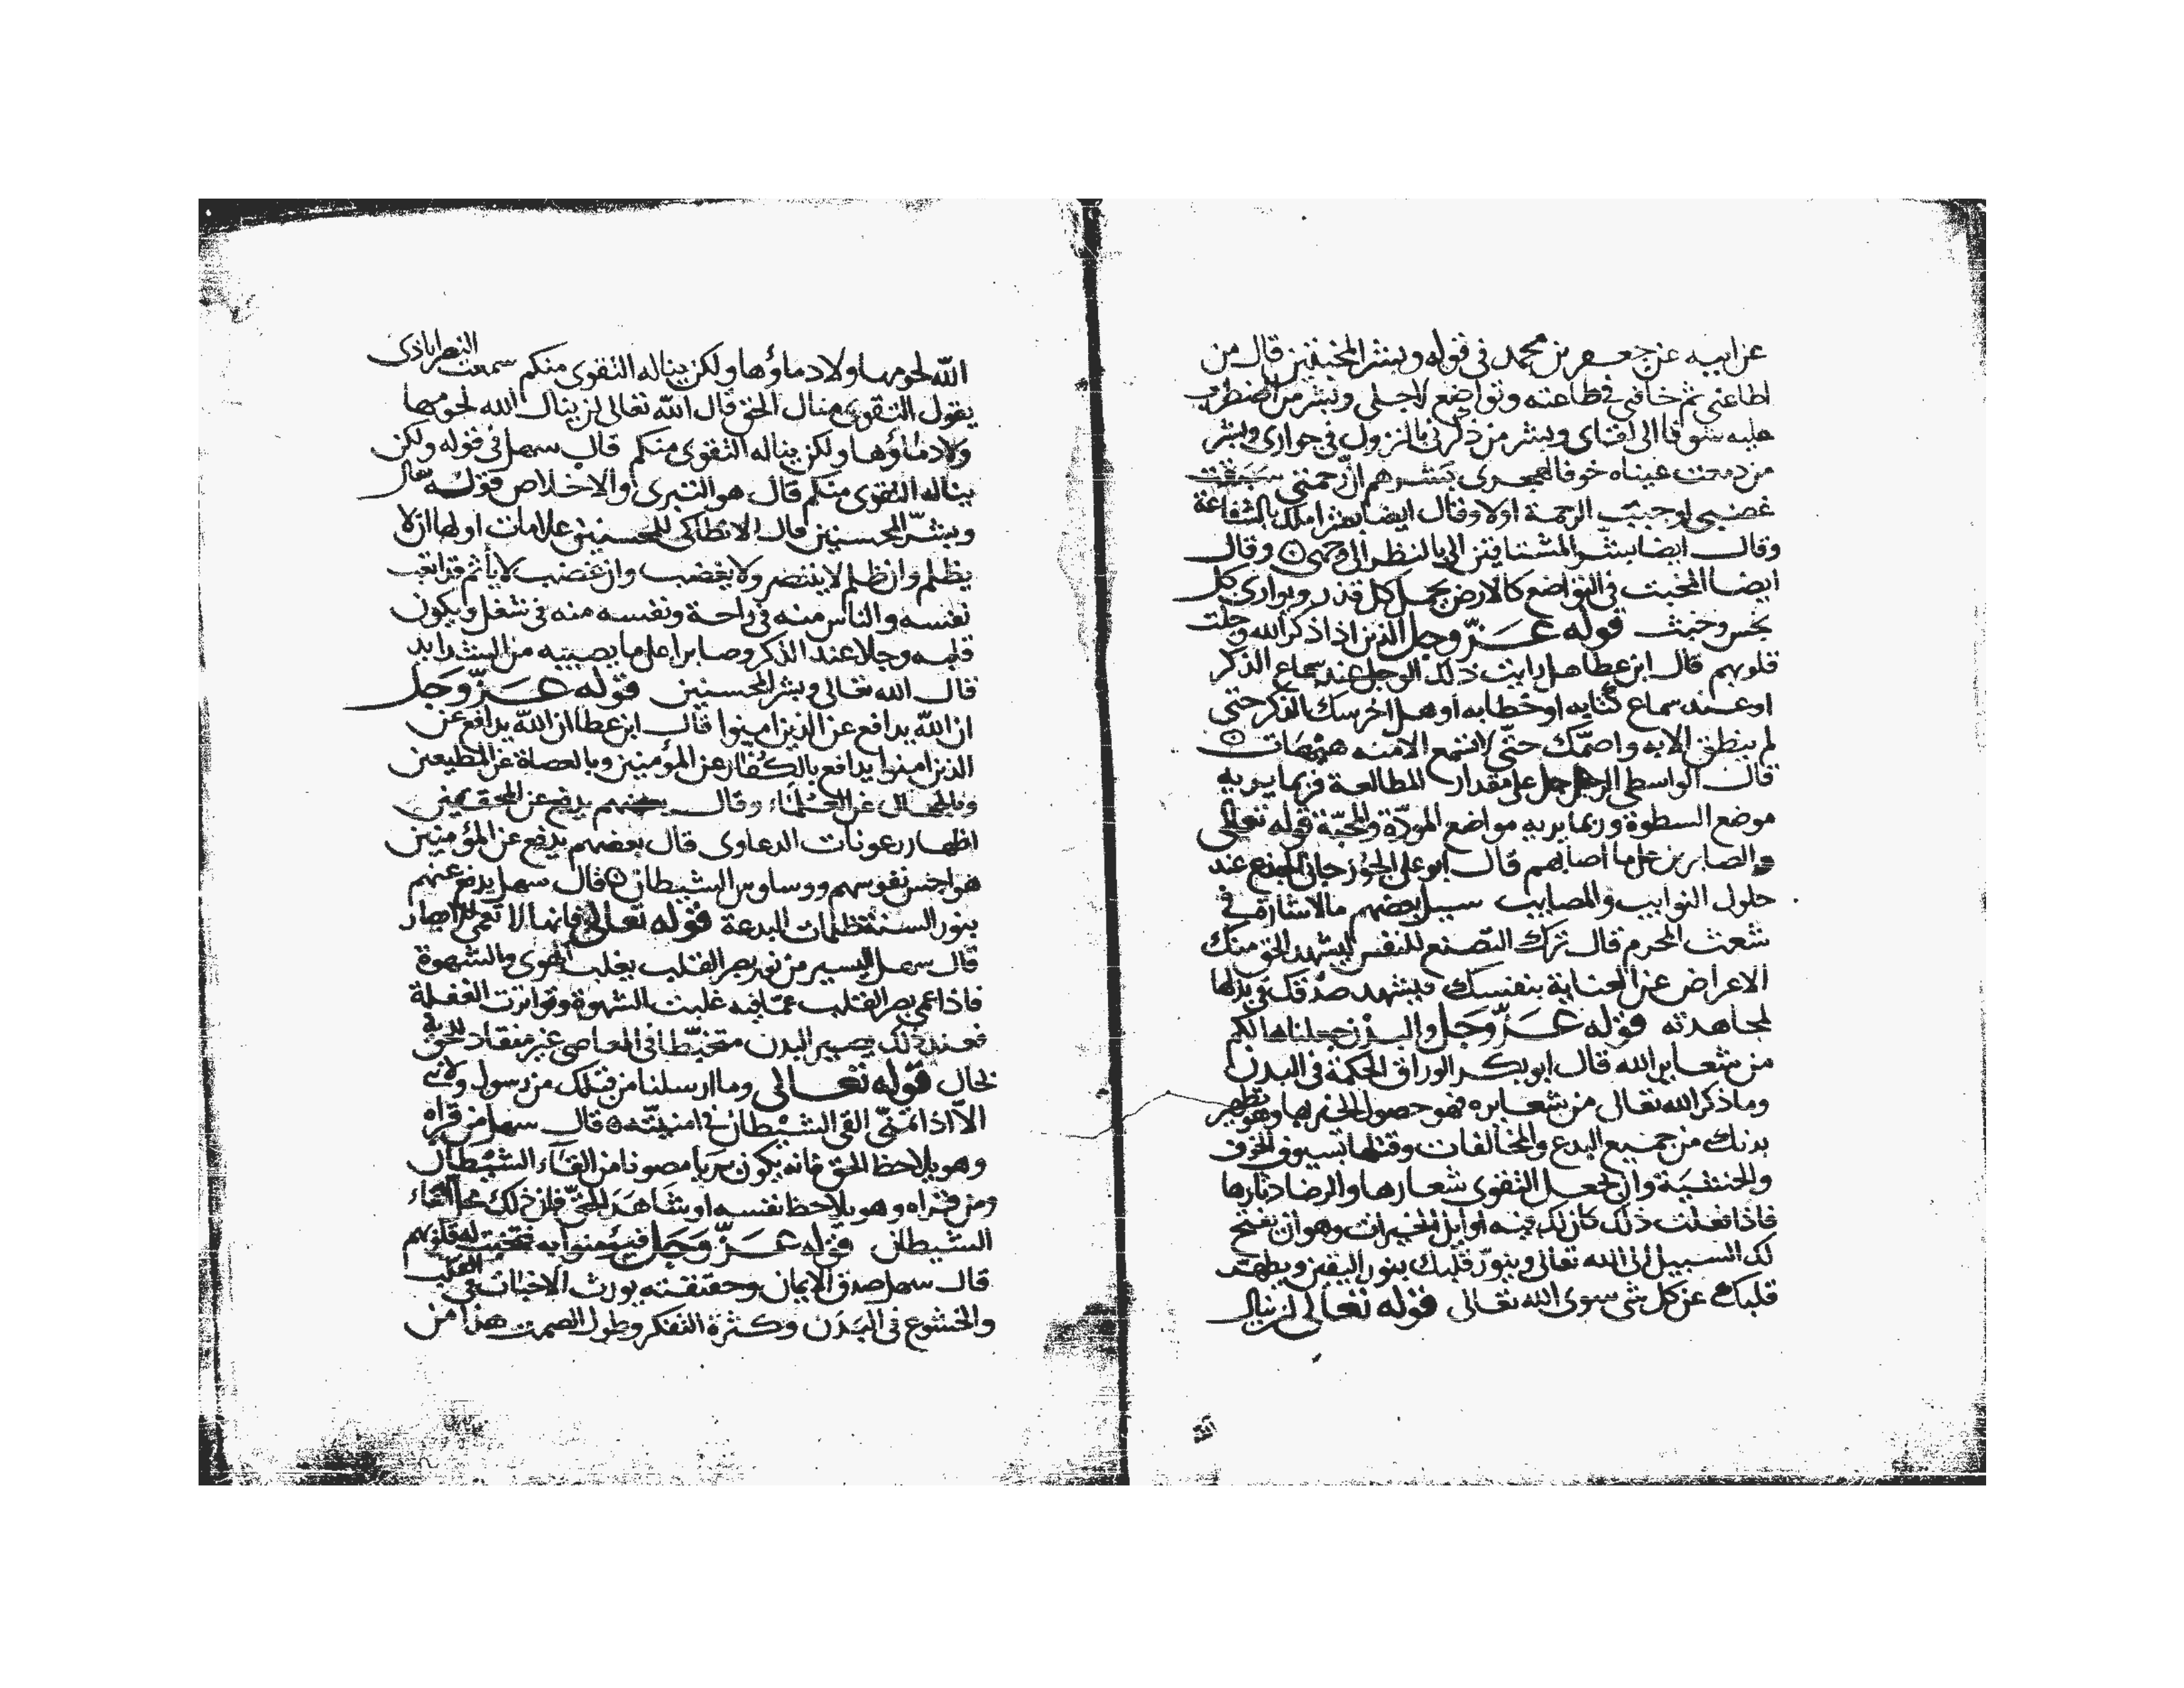 عن ابيه عن جعفر بن محمد فى قوله وبشر المخبتين قال من
اطاعنى ثم خافنى فى طاعته وتواضع لاجلى وبشر من اضطرب
قلبه شوقا الى لقاى وبشر من ذكرنى بالنزول فى جوارى وبشر
من دمعت عيناه خوفا لهجرى بشرهم ان رحمتى سبقت
غضبى اوجبت الرحمة اولا وقال ايضا بشر امتك بالشفاعة
وقال ايضا بشر المشتاقين الى بالنظر الى وجهى وقال
ايضا المخبت فى التواضع كالارض يحمل كل قذر ويوارى كل
نجس وخبث قوله عز وجل الذين اذا ذكر الله وجلت
قلوبهم قال ابن عطا هل رايت ذلك الوجل عند سماع الذكر
او عند سماع كتابه او خطابه او هل اخرسك الذكر حتى
لم ينطق الا به واصمك حتى لا تسمع الا منه هيهات
قال الواسطى الوجل على مقدار المطالعة فربما يريه
موضع السطوة وربما يريه مواضع المودة والمحبة قوله تعالى
والصابرين على ما اصابهم قال ابو على الجوزجانى عند
حلول النوايب والمصايب سيل بعضهم ما الاشارة فى
شعث المحرم قال ترك التصنع للنفس ليشهد الحق منك
الاعراض عن العناية بنفسك فيشهد صدقك فى بذلها
لمجاهدته قوله عز وجل والبدن جعلناها لكم
من شعاير الله قال ابو بكر الوراق الحكمة فى البدن
وما ذكر الله تعالى من شعايره فهو حصول الخير بها وهو تطهير
بدنك من جميع البدع والمخالفات وقتلها بسيوف الخوف
والخشية وان تجعل التقوى شعارها والرضا دثارها
فاذا فعلت ذلك كان لك فيه اوايل الخيرات وهو ان يفتح
لك السبيل الى الله تعالى وينور قلبك بنور اليقين ويطهر
قلبك عن كل شى سوى الله تعالى قوله تعالى لن ينال
الله لحومها ولا دماؤها ولكن يناله التقوى منكم سمعت النصراباذى
يقول التقوى منال الحق قال الله تعالى لن ينال الله لحومها
ولا دماؤها ولكن يناله التقوى منكم قال سهل فى قوله ولكن
يناله التقوى منكم قال هو التبرى والاخلاص قوله تعالى
وبشر المحسنين قال الانطاكى للمحسنين علامات اولها ان لا
يظلم وان ظلم لا ينتصر ولا يغضب وان غضب لا يأثم قد اتعب
نفسه والناس منه فى راحة ونفسه منه فى شغل ويكون
قلبه وجلا عند الذكر وصابرا على ما يصيبه من الشدايد
قال الله تعالى وبشر المحسنين قوله عز وجل
ان الله يدافع عن الذين امنوا قال ابن عطا ان الله يدافع عن
الذين امنوا يدافع بالكفار عن المؤمنين وبالعصاة عن المطيعين
وبالجهال عن العلماء وقال بعضهم يدفع عن المحققين
اظهار رعونات الدعاوى قال بعضهم يدفع عن المؤمنين
هواجس نفوسهم ووساوس الشيطان قال سهل يدفع عنهم
بنور السنة ظلمات البدعة قوله تعالى فانها لا تعمى الابصار
قال سهل اليسير من نور بصر القلب يغلب الهوى والشهوة
فاذا عمى بصر القلب عما فيه غلبت الشهوة وتواترت الغفلة
فعند ذلك يصير البدن متخبطا فى المعاصى غير منقاد للحق
بحال قوله تعالى وما ارسلنا من قبلك من رسول ولا نبى
الا اذا تمنى القى الشيطان فى امنيته قال سهل من قراه
وهو يلاحظ الحق فانه يكون بريا مصونا من القاء الشيطان
ومن قراه وهو يلاحظ نفسه او شاهد للحق فان ذلك محل القاء
الشيطان قوله عز وجل فيؤمنوا به فتخبت له قلوبهم
قال سهل صدق الايمان وحقيقته يورث الاخبات فى القلب
والخشوع فى البدن وكثرة التفكر وطول الصمت هذا من